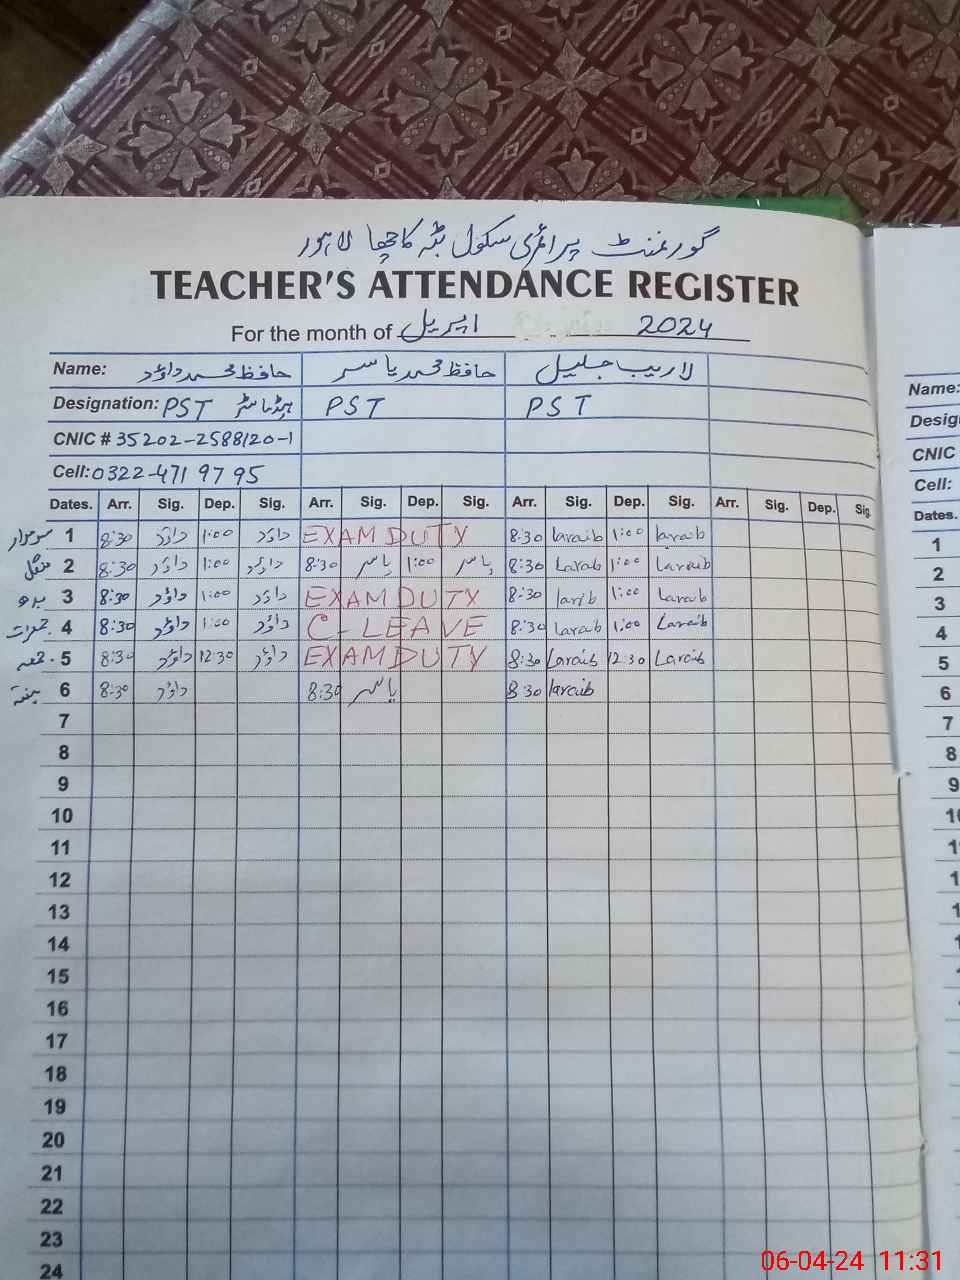 گورنمنٹ پرائمری سکول بٹہ کاچھا لاہور
TEACHER'S ATTENDANCE REGISTER
For the month of اپریل 2024
Name: حافظ محمد داؤد حافظ محمد یاسر لاریب جلیل
Designation: PST ہیڈماسٹر PST PST
CNIC # 35202-2588120-1
Cell: 0322-471 97 95
Dates. Arr. Sig. Dep. Sig. Arr. Sig. Dep. Sig. Arr. Sig. Dep. Sig. Arr. Sig. Dep. Sig.
سوموار 1 8:30 داؤد 1:00 داؤد EXAM DUTY 8:30 laraib 1:00 laraib
منگل 2 8:30 داؤد 1:00 داؤد 8:30 یاسر 1:00 یاسر 8:30 Larab 1:00 Laraib
بدھ 3 8:30 داؤد 1:00 داؤد EXAM DUTY 8:30 larib 1:00 Larab
جمعرات 4 8:30 داؤد 1:00 داؤد C-LEAVE 8:30 larab 1:00 Laraib
جمعہ 5 8:30 داؤد 12:30 داؤد EXAM DUTY 8:30 Laraib 12:30 Laraib
ہفتہ 6 8:30 داؤد 8:30 یاسر 8:30 laraib
7
8
9
10
11
12
13
14
15
16
17
18
19
20
21
22
23
24
Name:
CNIC
Cell:
Dates.
1
2
3
4
5
6
7
8
9
06-04-24 11:31